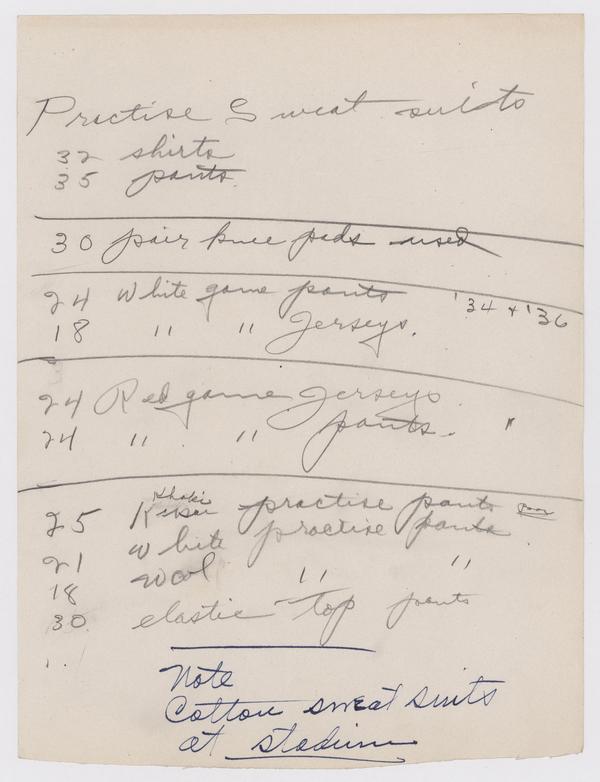 Practise Sweat suits
32 shirts
35 pants.
30 pair knee pads used
24 White game pants '34 + '36
18 " " Jerseys.
24 Red game Jerseys
24 " " pants. "
Khaki
25 practise pants poor
21 White practise pants
18 wool " "
30 elastic top pants
Note
Cotton sweat suits
at stadium